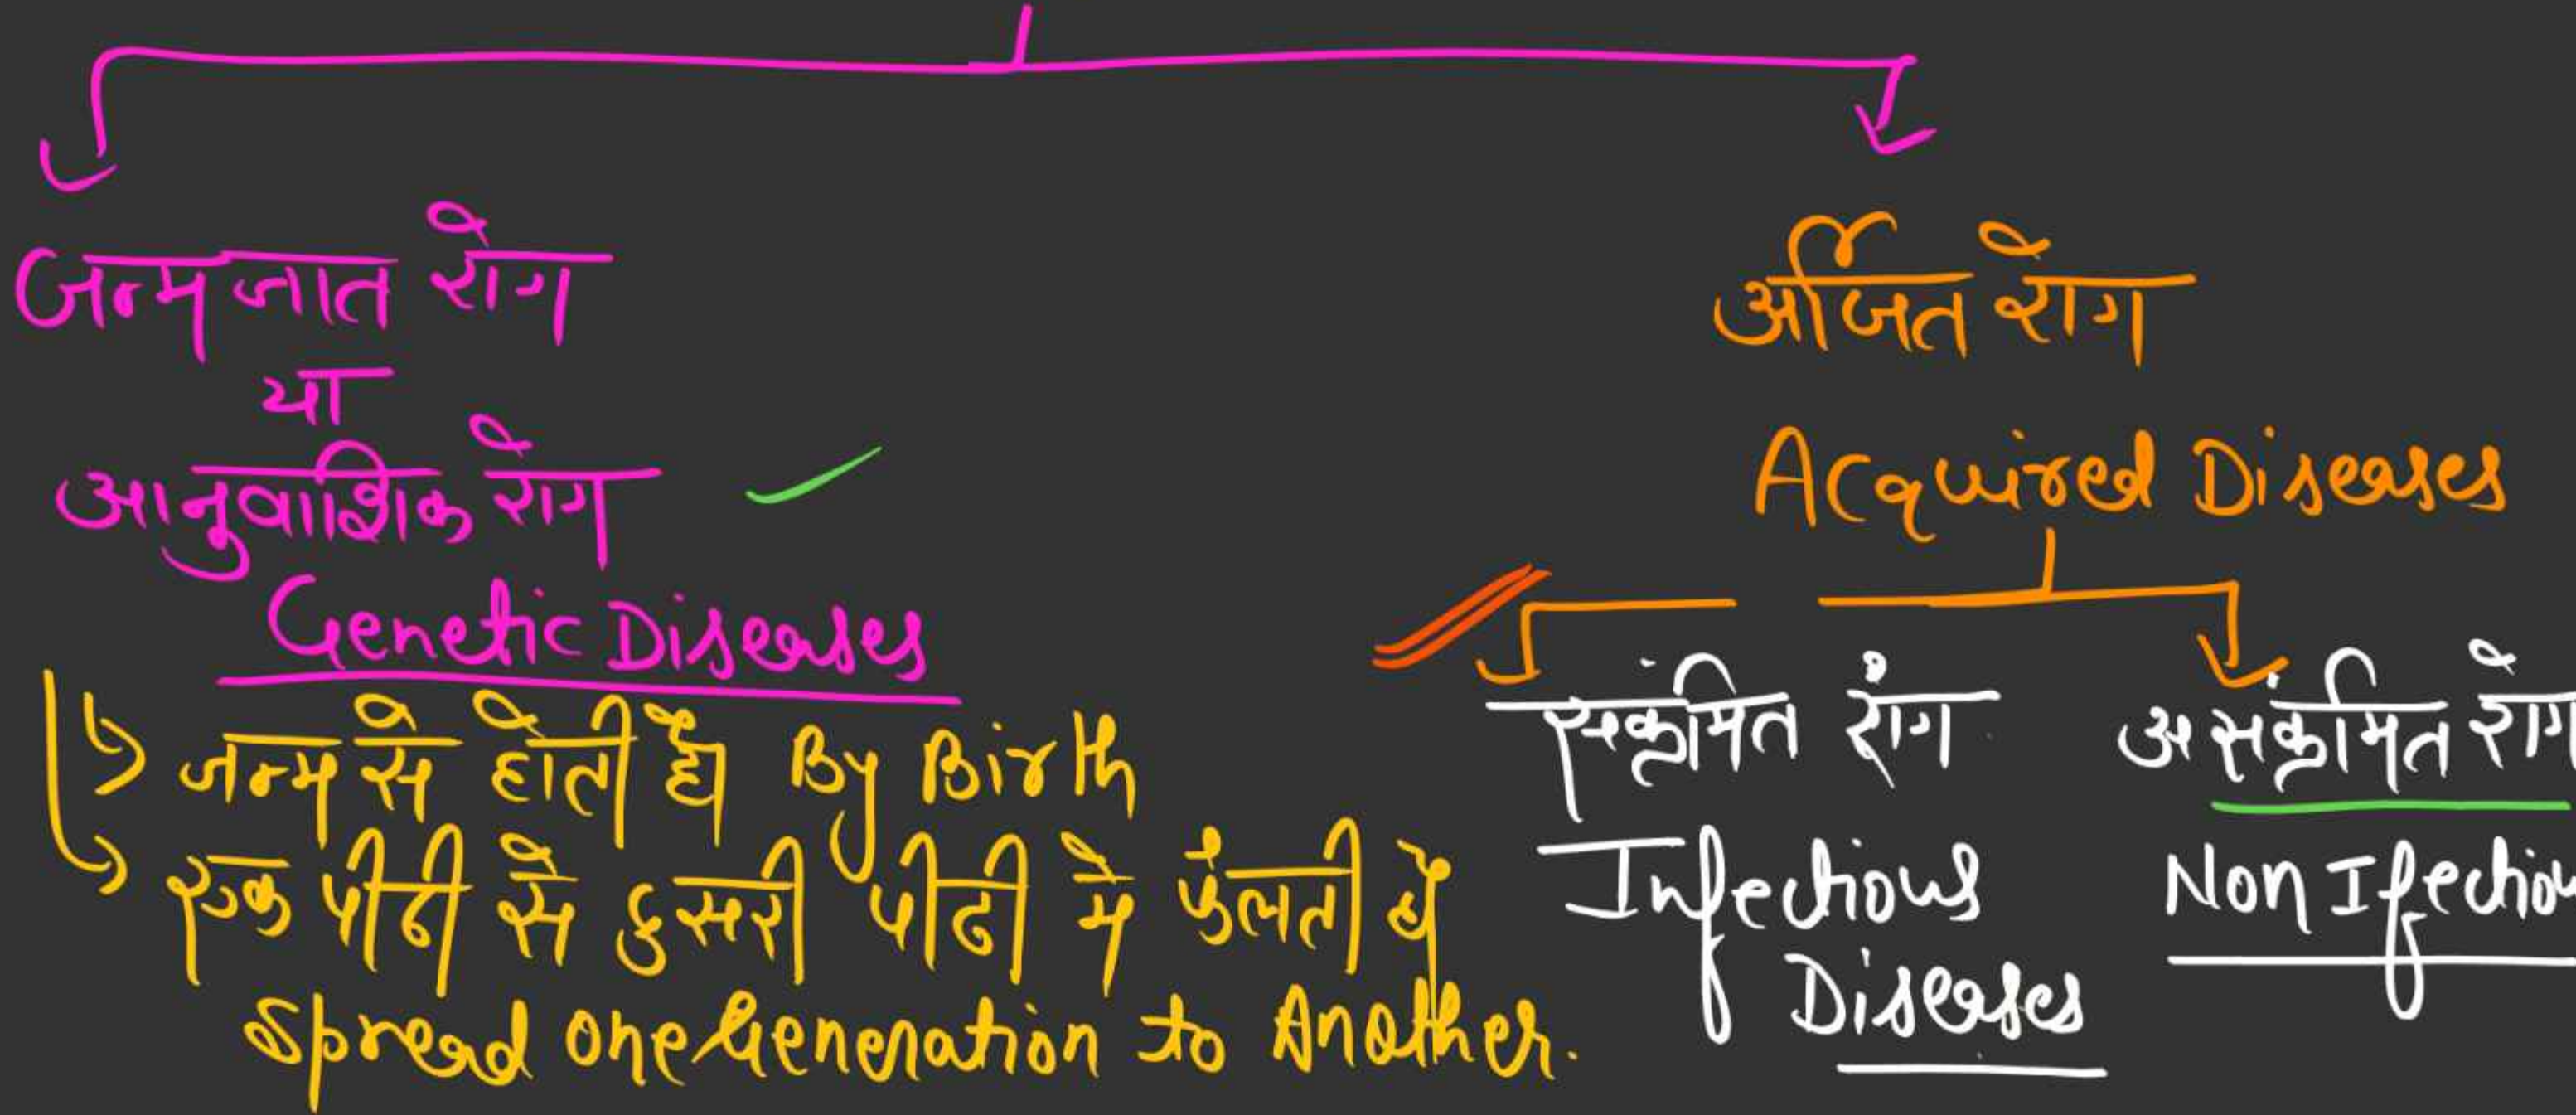 जन्मजात रोग
या
आनुवांशिक रोग
Genetic Diseases
जन्म से होती है By Birth
एक पीढी से दुसरी पीढी मे फैलती है
Spread one Generation to Another.
अर्जित रोग
Acquired Diseases
संक्रमित रोग
Infectious
Diseases
असंक्रमित रोग
Non Ifectiou